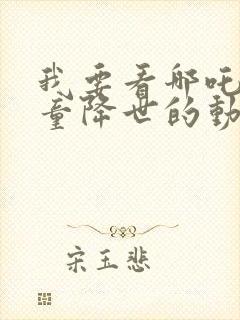 我要看哪吒
童降世的動
宋玉悲